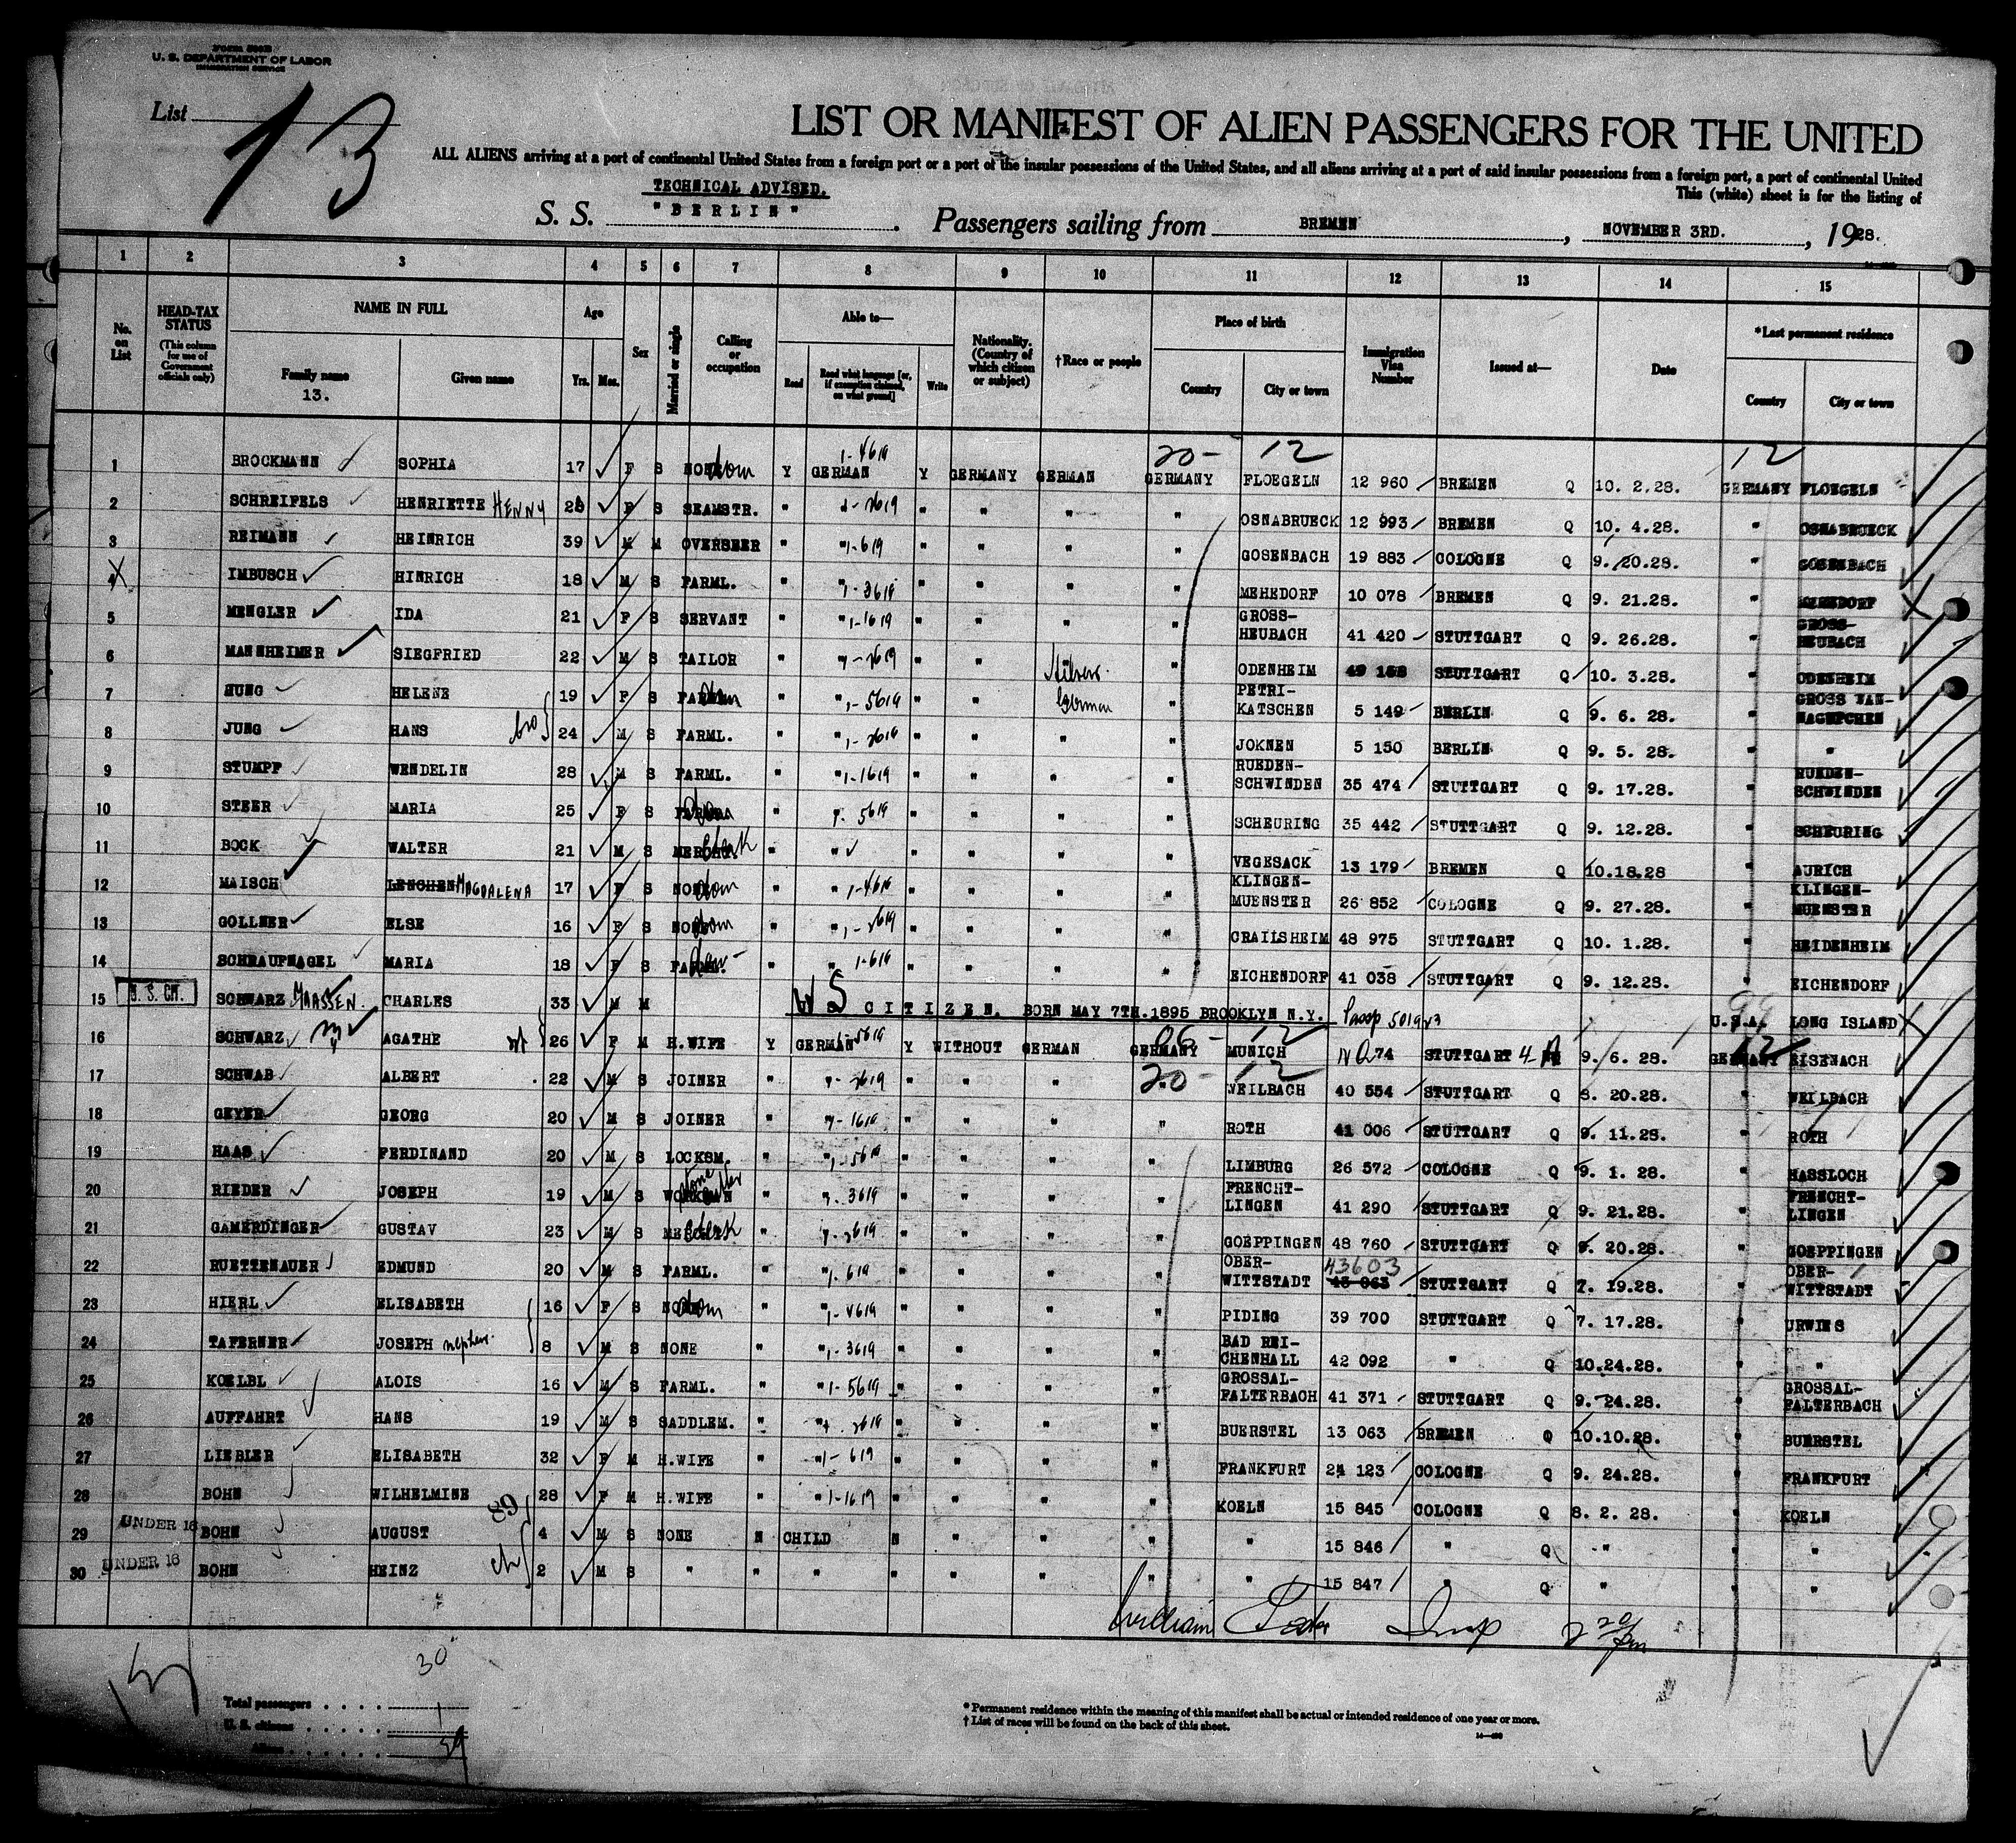 Form 500B
U. S. DEPARTMENT OF LABOR
IMMIGRATION SERVICE
List 13
LIST OR MANIFEST OF ALIEN PASSENGERS FOR THE UNITED
ALL ALIENS arriving at a port of continental United States from a foreign port or a port of the insular possessions of the United States, and all aliens arriving at a port of said insular possessions from a foreign port, a port of continental United
This (white) sheet is for the listing of
TECHNICAL ADVISED.
S. S. "BERLIN". Passengers sailing from BREMEN, NOVEMBER 3RD., 1928.
1 2 3 4 5 6 7 8 9 10 11 12 13 14 15
No. on List
HEAD-TAX STATUS (This column for use of Government officials only)
NAME IN FULL Family name 13. Given name
Age Yrs. Mos.
Sex
Married or single
Calling or occupation
Able to— Read Read what language [or, if exemption claimed, on what ground] Write
Nationality. (Country of which citizen or subject)
†Race or people
Place of birth Country City or town
Immigration Visa Number
Issued at—
Date
*Last permanent residence Country City or town
20- 12 12
1 BROCKMANN SOPHIA 17 F S NONE dom Y GERMAN Y GERMANY GERMAN GERMANY FLOEGELN 12 960 BREMEN Q 10. 2.28. GERMANY FLOEGELN
2 SCHREIFELS HENRIETTE HENNY 28 F S SEAMSTR. " " " " " " OSNABRUECK 12 993 BREMEN Q 10. 4.28. " OSNABRUECK
3 REIMANN HEINRICH 39 M M OVERSEER " " " " " " GOSENBACH 19 883 COLOGNE Q 9. 20.28. " GOSENBACH
4 IMBUSCH HINRICH 18 M S FARML. " " " " " " MEHEDORF 10 078 BREMEN Q 9. 21.28. " MEHEDORF
5 MENGLER IDA 21 F S SERVANT " " " " " " GROSS-HEUBACH 41 420 STUTTGART Q 9. 26.28. " GROSS-HEUBACH
6 MANNHEIMER SIEGFRIED 22 M S TAILOR " " " " Hebrew " ODENHEIM STUTTGART Q 10. 3.28. " ODENHEIM
7 JUNG HELENE 19 F S " " " " German " PETRI-KATSCHEN 5 149 BERLIN Q 9. 6. 28. " GROSS
8 JUNG HANS bro 24 M S FARML. " " " " " " JOKNEN 5 150 BERLIN Q 9. 5. 28. " "
9 STUMPF WENDELIN 28 M S FARML. " " " " " " RUEDEN-SCHWINDEN 35 474 STUTTGART Q 9. 17.28. " RUEDEN-SCHWINDEN
10 STEER MARIA 25 F S " " " " " " SCHEURING 35 442 STUTTGART Q 9. 12.28. " SCHEURING
11 BOCK WALTER 21 M S MERCHT. clerk " " " " " " VEGESACK 13 179 BREMEN Q 10.18.28 " AURICH
12 MAISCH LENCHEN MAGDALENA 17 F S NONE dom " " " " " " KLINGEN-MUENSTER 26 852 COLOGNE Q 9. 27.28. " KLINGEN-MUENSTER
13 GOLLNER ELSE 16 F S NONE dom " " " " " " CRAILSHEIM 48 975 STUTTGART Q 10. 1.28. " HEIDENHEIM
14 SCHRAUFNAGEL MARIA 18 F S " " " " " " EICHENDORF 41 038 STUTTGART Q 9. 12.28. " EICHENDORF
15 U. S. CIT. SCHWARZ MAASSEN. CHARLES 33 M M U S CITIZEN. BORN MAY 7TH.1895 BROOKLYN N.Y. U.S.A. LONG ISLAND
16 SCHWARZ AGATHE wf 26 F M H.WIFE Y GERMAN Y WITHOUT GERMAN GERMANY MUNICH 74 STUTTGART 9. 6. 28. GERMANY EISENACH
17 SCHWAB ALBERT 22 M S JOINER " " " " " 20- 12 WEILBACH 40 554 STUTTGART Q 8. 20.28. " WEILBACH
18 GEYER GEORG 20 M S JOINER " " " " " " ROTH 41 006 STUTTGART Q 9. 11.28. " ROTH
19 HAAS FERDINAND 20 M S LOCKSM. " " " " " " LIMBURG 26 572 COLOGNE Q 9. 1. 28. " HASSLOCH
20 RIEDER JOSEPH 19 M S WORKMAN stone cutter " " " " " " FRENCHT-LINGEN 41 290 STUTTGART Q 9. 21.28. " FRENCHT-LINGEN
21 GAMERDINGER GUSTAV 23 M S clerk " " " " " " GOEPPINGEN 48 760 STUTTGART Q 20.28. " GOEPPINGEN
22 RUETTENAUER EDMUND 20 M S FARML. " " " " " " OBER-WITTSTADT 43603 STUTTGART Q 7. 19.28. " OBER-WITTSTADT
23 HIERL ELISABETH 16 F S NONE dom " " " " " " PIDING 39 700 STUTTGART Q 7. 17.28. " URWIES
24 TAFERNER JOSEPH nephew. 8 M S NONE " " " " " " BAD REI-CHENHALL 42 092 " Q 10.24.28. " "
25 KOELBL ALOIS 16 M S FARML. " " " " " " GROSSAL-FALTERBACH 41 371 STUTTGART Q 9. 24.28. " GROSSAL-FALTERBACH
26 AUFFAHRT HANS 19 M S SADDLEM. " " " " " " BUERSTEL 13 063 BREMEN Q 10.10.28. " BUERSTEL
27 LIEBLER ELISABETH 32 F M H.WIFE " " " " " " FRANKFURT 24 123 COLOGNE Q 9. 24.28. " FRANKFURT
28 BOHN WILHELMINE 89 28 F M H.WIFE " " " " " " KOELN 15 845 COLOGNE Q 8. 2. 28. " KOELN
29 UNDER 16 BOHN AUGUST ch 4 M S NONE N CHILD N " " " " 15 846 " Q " " "
30 UNDER 16 BOHN HEINZ 2 M S " " " " " " " " 15 847 " Q " " "
William Insp 2 20 pm
30
Total passengers . . . .
U. S. citizens . . . . . 1
Aliens . . . . . . 29
* Permanent residence within the meaning of this manifest shall be actual or intended residence of one year or more.
† List of races will be found on the back of this sheet.